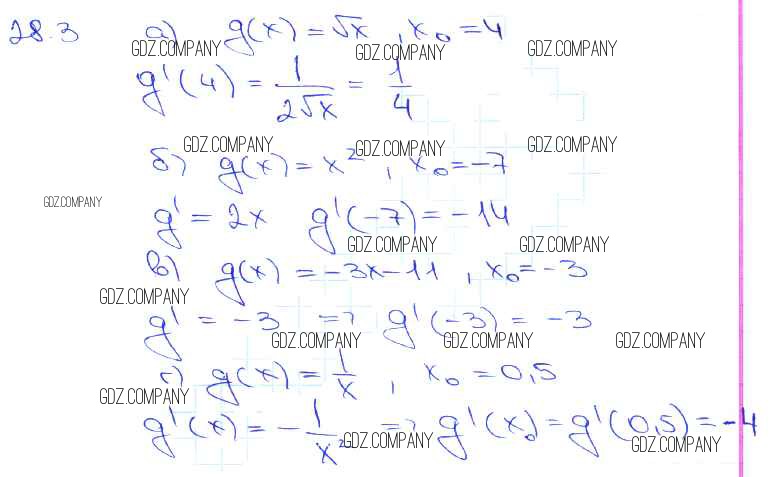 28.3 а) g(x) = √x , x₀ = 4
GDZ.COMPANY GDZ.COMPANY GDZ.COMPANY
g'(4) = 1/(2√x) = 1/4
GDZ.COMPANY GDZ.COMPANY GDZ.COMPANY
б) g(x) = x² , x₀ = -7
GDZ.COMPANY
g' = 2x g'(-7) = -14
GDZ.COMPANY GDZ.COMPANY
в) g(x) = -3x-11 , x₀ = -3
GDZ.COMPANY
g' = -3 => g'(-3) = -3
GDZ.COMPANY GDZ.COMPANY
г) g(x) = 1/x , x₀ = 0,5
GDZ.COMPANY
g'(x) = -1/x² => g'(x₀) = g'(0,5) = -4
GDZ.COMPANY GDZ.COMPANY